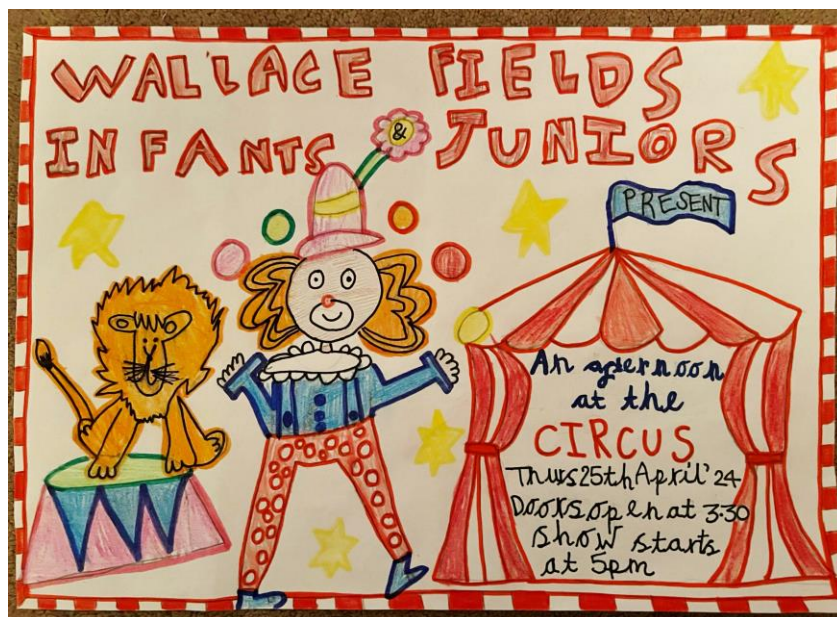 WALLACE FIELDS
INFANTS & JUNIORS
PRESENT
An afternoon
at the
CIRCUS
Thurs 25th April '24
Doors open at 3-30
Show starts
at 5pm